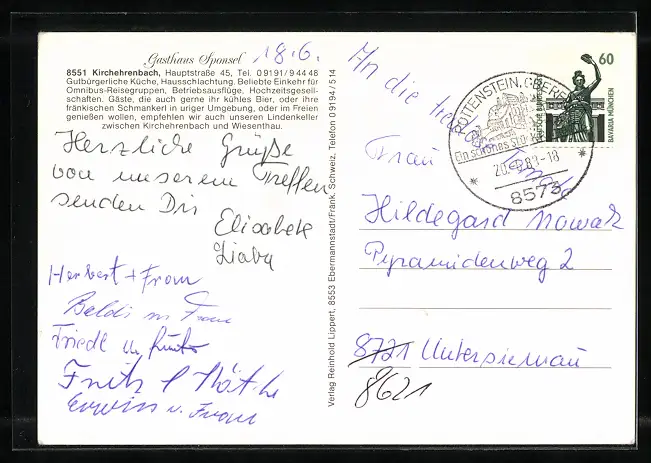 Gasthaus Sponsel
18.6.
8551 Kirchehrenbach, Hauptstraße 45, Tel. 0 91 91/9 44 48
Gutbürgerliche Küche, Hausschlachtung. Beliebte Einkehr für
Omnibus-Reisegruppen, Betriebsausflüge, Hochzeitsgesell-
schaften. Gäste, die auch gerne ihr kühles Bier, oder ihre
fränkischen Schmankerl in uriger Umgebung, oder im Freien
genießen wollen, empfehlen wir auch unseren Lindenkeller
zwischen Kirchehrenbach und Wiesenthau.
Herzliche Grüße
von unserem Treffen
senden Dir
Elisabeth
Herbert + Frau
Baldi u Frau
Friedl u
Fritz
Erwin u. Frau
Verlag Reinhold Lippert, 8553 Ebermannstadt/Fränk. Schweiz, Telefon 0 91 94/5 14
An die
Frau
Hildegard Nowak
Pyramidenweg 2
8721 Untersiemau
8621
POTTENSTEIN, OBERFR
Ein schönes Stück
8573
60
DEUTSCHE BUNDESPOST
BAVARIA MÜNCHEN